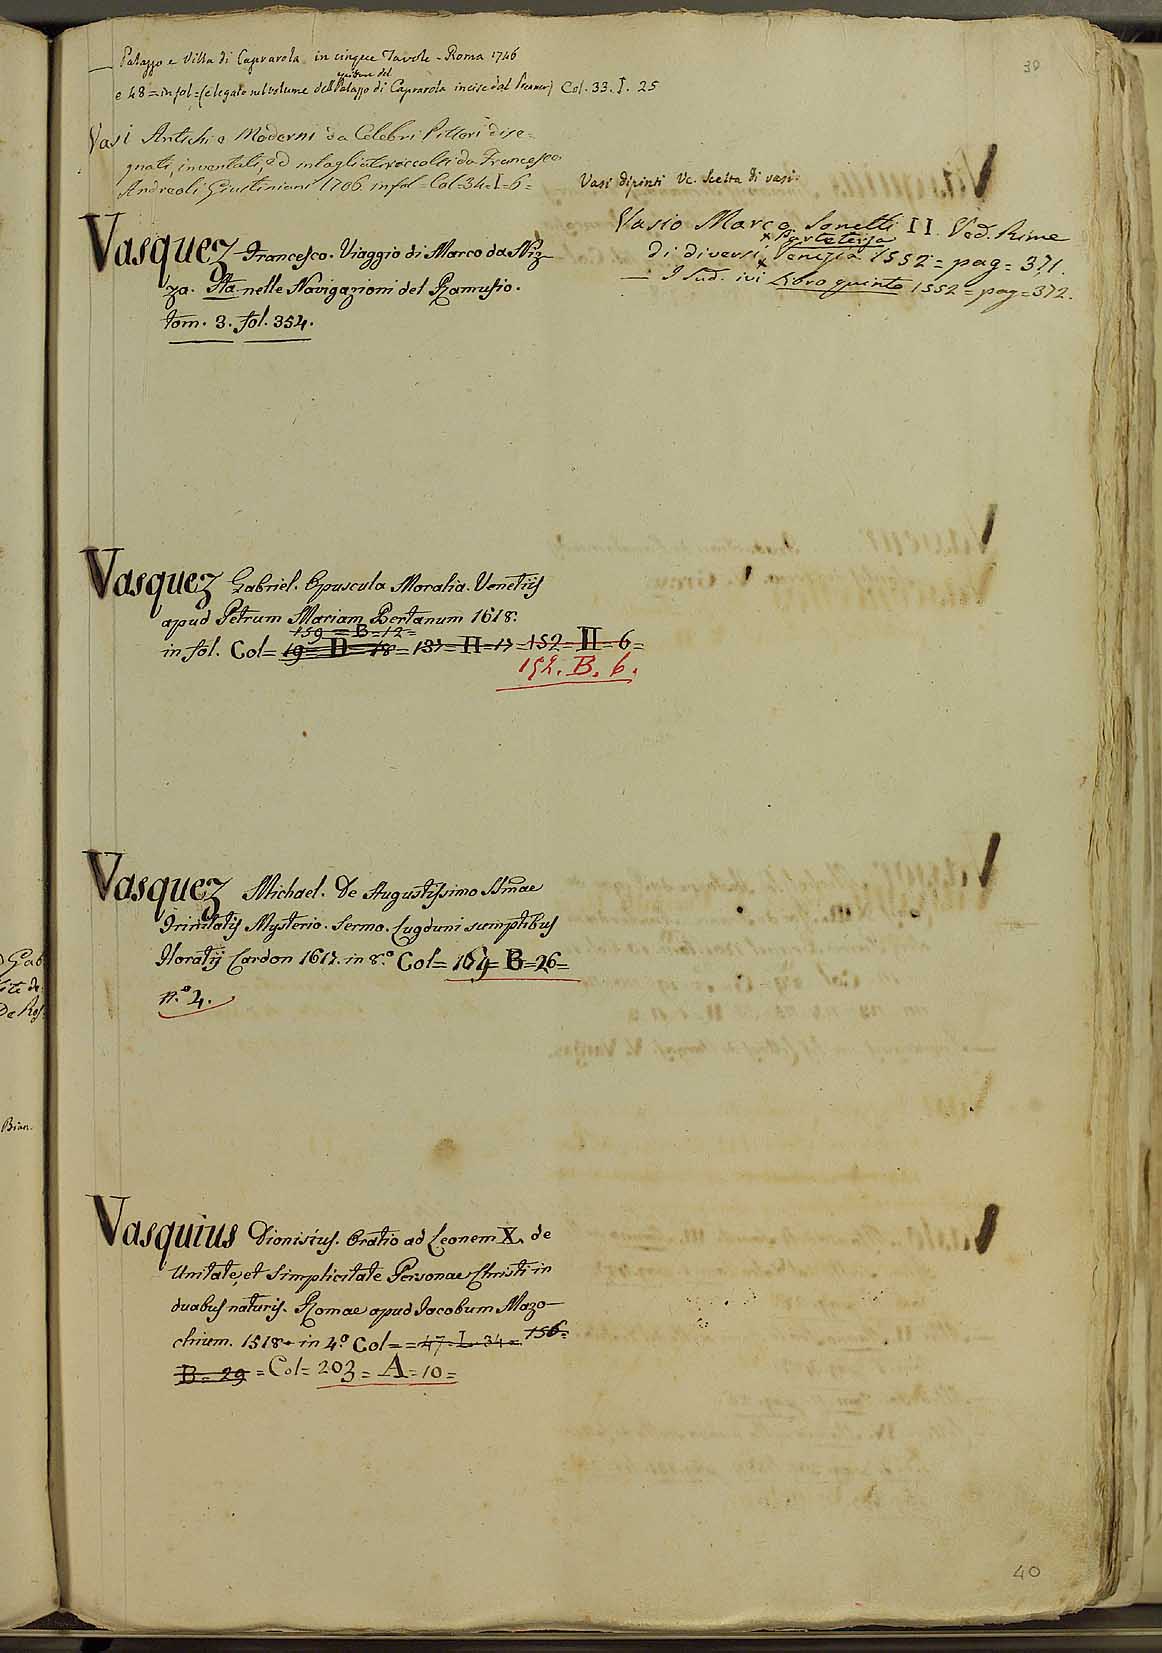 39
— Palazzo e Villa di Caprarola in cinque Tavole - Roma 1746
e 48 = in fol = (è legato nel volume dell Palazzo di Caprarola incise dal) Col. 33. I. 25
Vasi Antichi e Moderni da Celebri Pittori dise-
gnati, inventati, ed intagliati raccolti da Francesco
Andreoli Giustiniani 1706. in fol = Col = 34 = I = 6 =
Vasi dipinti Vc. Scelta di vasi.
Vasquez Francesco. Viaggio di Marco da Niz-
za. Sta nelle Navigazioni del Ramusio.
tom. 3. fol. 354.
Vasio Marco Sonetti II. Ved. Rime
Parte terza
di diversi, Venezia 1552 = pag = 371.
— I Sud. ivi Libro quinto 1552 = pag = 372.
Vasquez Gabriel. Opuscula Moralia. Venetijs
apud Petrum Mariam Bertanum 1618.
159 = B = 12 =
in fol. Col = 19 = D = 18 = 137 = H = 17 = 152 = H = 6 =
152. B. 6.
Vasquez Michael. De Augustissimo SSmae
Trinitatis Mysterio. Sermo. Lugduni sumptibus
Horatij Cardon 1617. in 8.° Col = 164 = B = 26 =
n.° 2.
Vasquius Dionisius. Oratio ad Leonem X. de
Unitate, et Simplicitate Personae Christi in
duabus naturis. Romae apud Jacobum Mazo-
chium. 1518. in 4.° Col = = 47. L. 34 = 156 =
B = 29 = Col = 203 = A = 10 =
40
Bian.